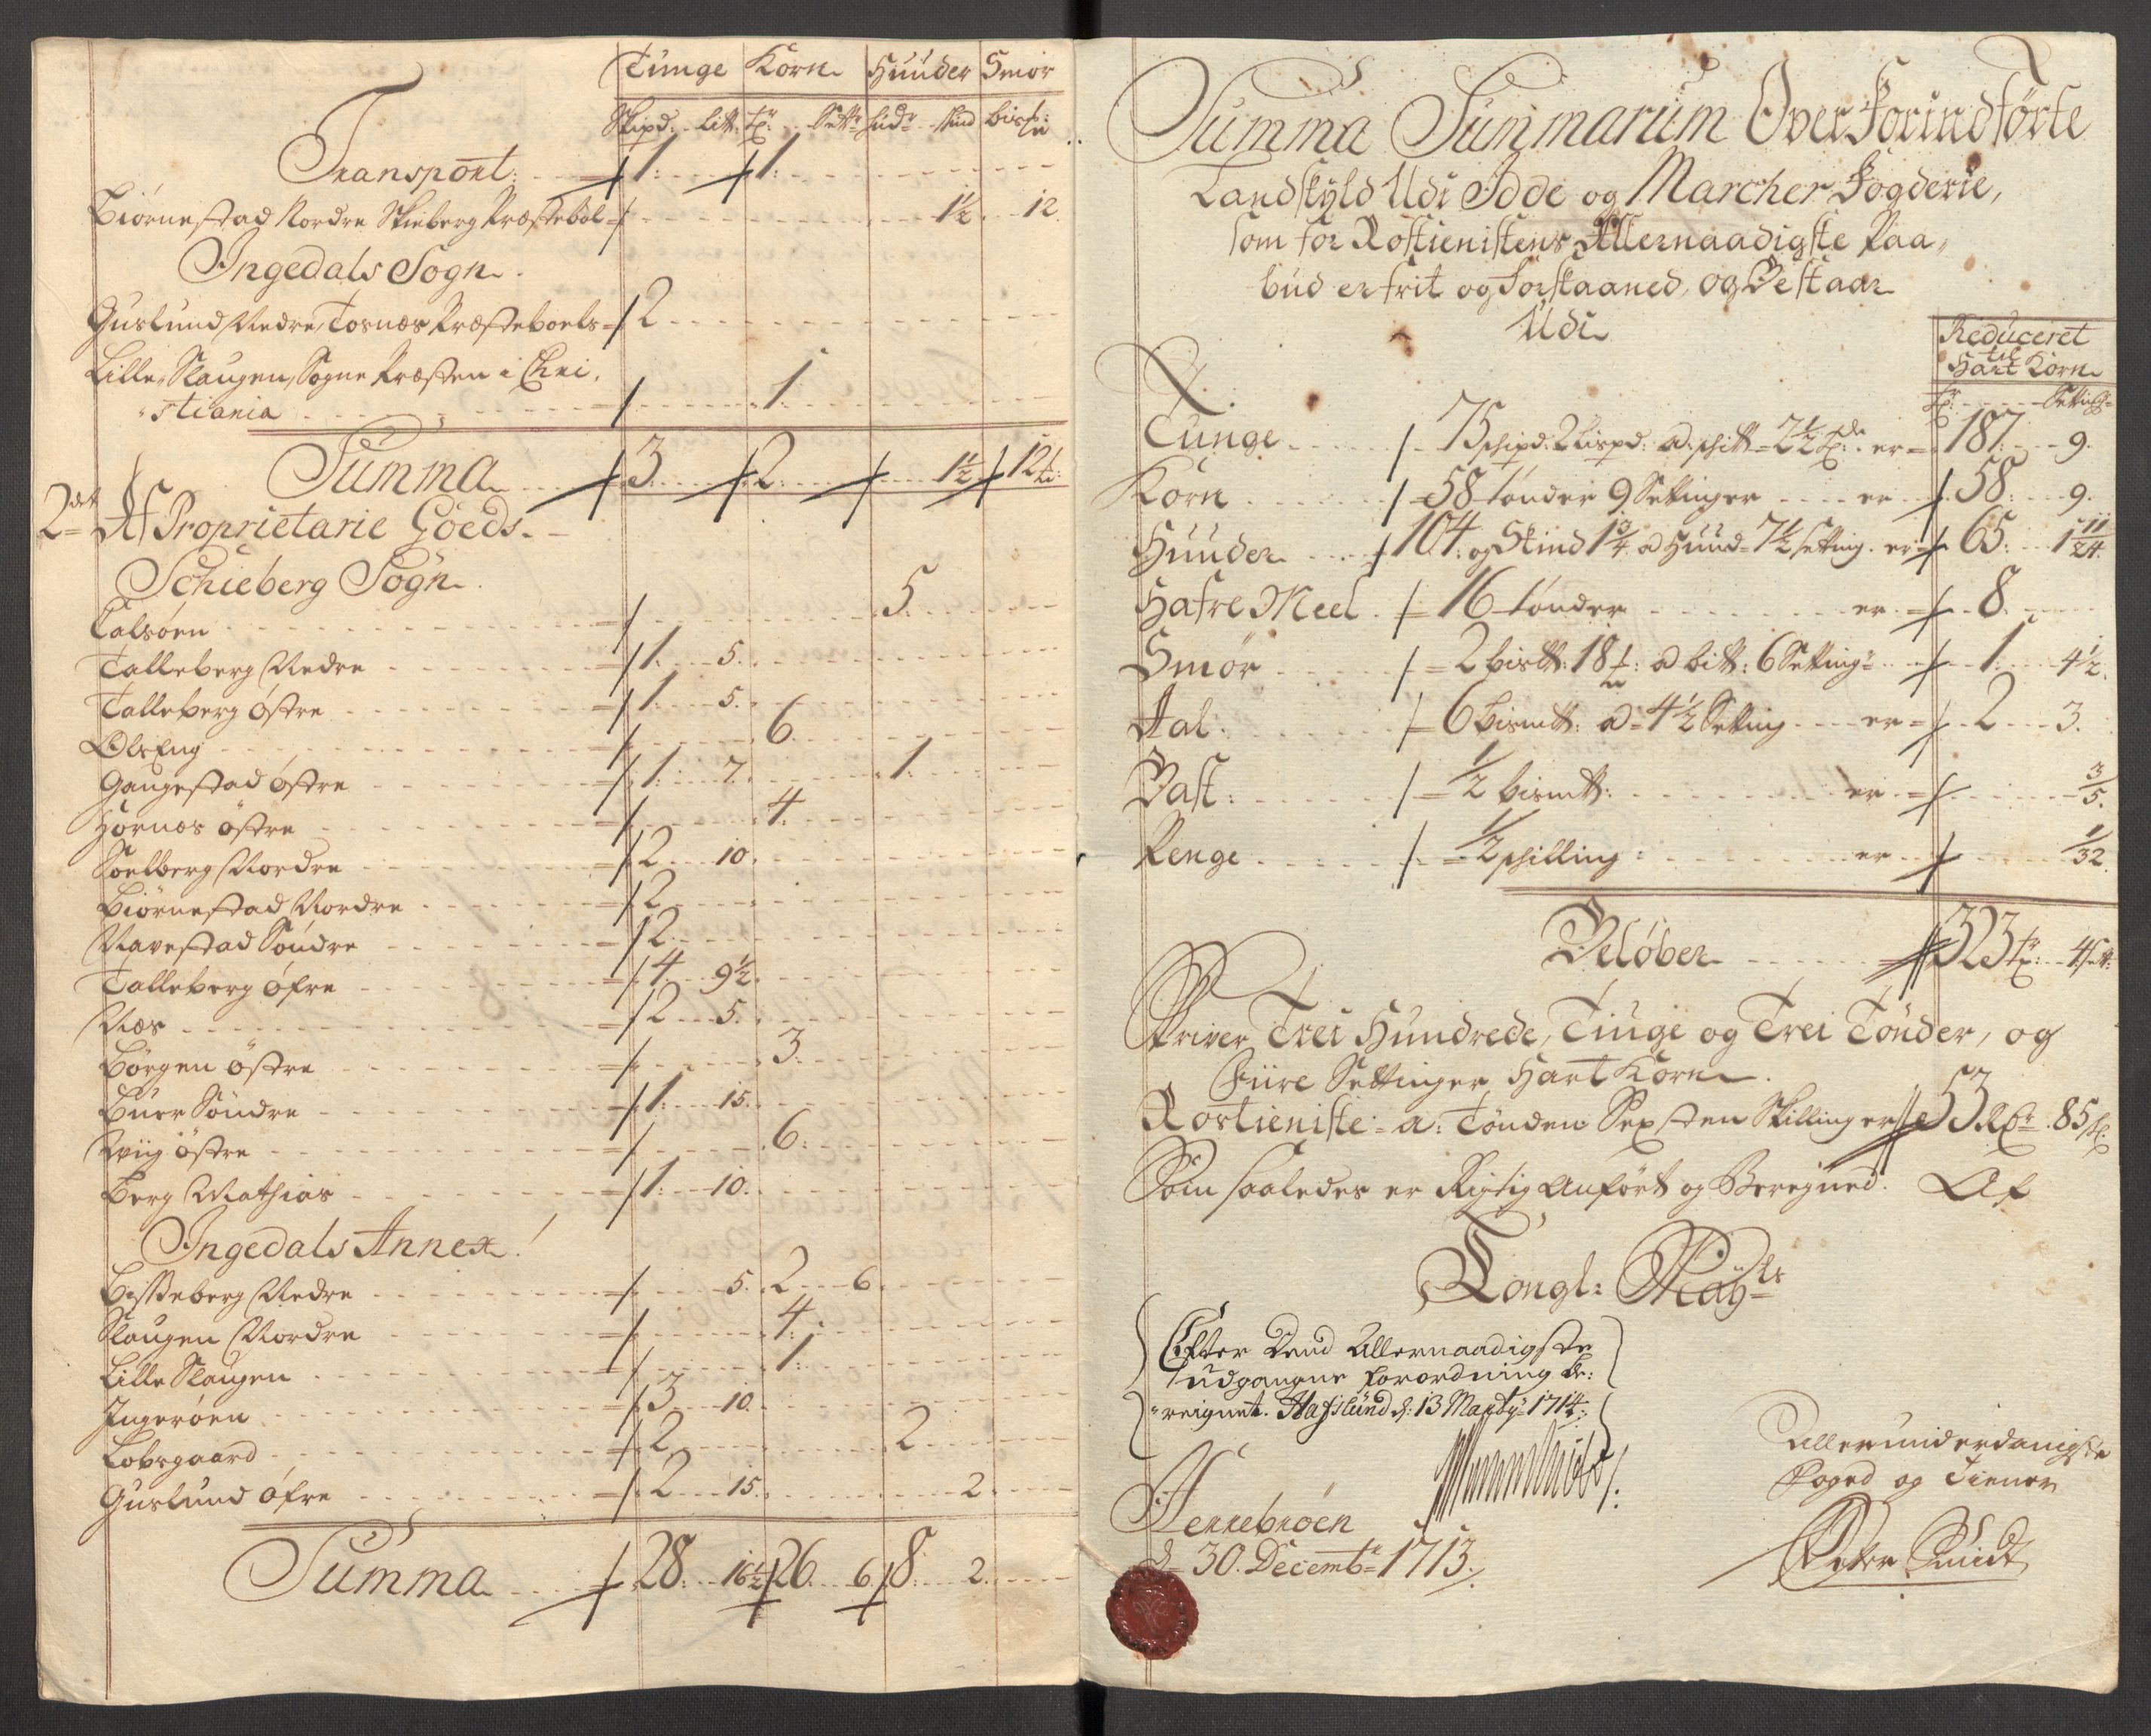 Tunge Korn Huuder Smör
Skipd: litt: tr: Sett: hudr skind bissm:
Transport: 1: 1:
Biörnestad Nordre Skieberg Præstebol 1½ 12
Ingedals Sogn.
Guslund Nedre, Tosnæs Præsteboels 2
Lille Slaugen, Sogne Præsten i Chri-
stiania 1
Summa 3 2 1½ 12
2det Af Proprietarie Goeds.
Schieberg Sogn.
Calsöen 5
Talleberg Nedre 1 5
Talleberg östre 1 5
Olseng 6
Gaugestad östre 1 7 1
Hornæs östre 4
Soelberg Nordre 2 10
Biörnestad Nordre 2
Navestad Söndre 2
Talleberg öfre 4 9½
Næs 2 5
Börgen östre 3
Buer Söndre 1 15
Wiig östre 6
Berg Mathias 1 10
Ingedals Annex.
Bisseberg Nedre 5 2 6
Slaugen Nordre 4
Lille Slaugen 1
Ingeröen 3 10
Lobsgaard 2 2
Guslund öfre 2 15 2
Summa 28 16½ 26 6 8 2
Summa Summarum Over Forindförte
Landskyld Udi Idde og Marcher Fogderie,
som for Rostienistens Allernaadigste Paa-
bud er frit og Forskaaned, og Bestaar
Udi
Reduceret
til
Hart Korn
tr: Setting
Tunge 75 schipd: 2 Lispd: a schitt 2½ tde er 187 9.
Korn 58 tönder 9 Settinger er 58 9.
Huuder 104: og Skind 1¾ a Huud 7½ setting er 65: 1 11/24.
Hafre Meel 16 tönder er 8
Smör 2 bistt: 18 : a bitt: 6 Setting 1 4½.
Aal: 6 bismtt: a 4½ Setting er 2 3.
Bast: ½ bismtt: er 3/5.
Penge ½ schilling er 1/32.
Belöber 323 tr: 4 sett:
Skriver Trei Hundrede, Tiuge og Trei Tönder, og
Fiire Settinger Hart Korn.
Rostieniste a: Tönden Sexsten Skilling er 53 Rdr 85 s.
Som saaledes er Rigtig Anfört og Beregned. Af
Kongl: Mayts
Efter Dend Allernaadigste
udgangne forordning be-
reignet. Hafslund d: 13 Martÿ 1714:
Allerunderdanigste
Foged og Tiener
Henrebröen
d 30. Decembr 1713.
Peter Smidt